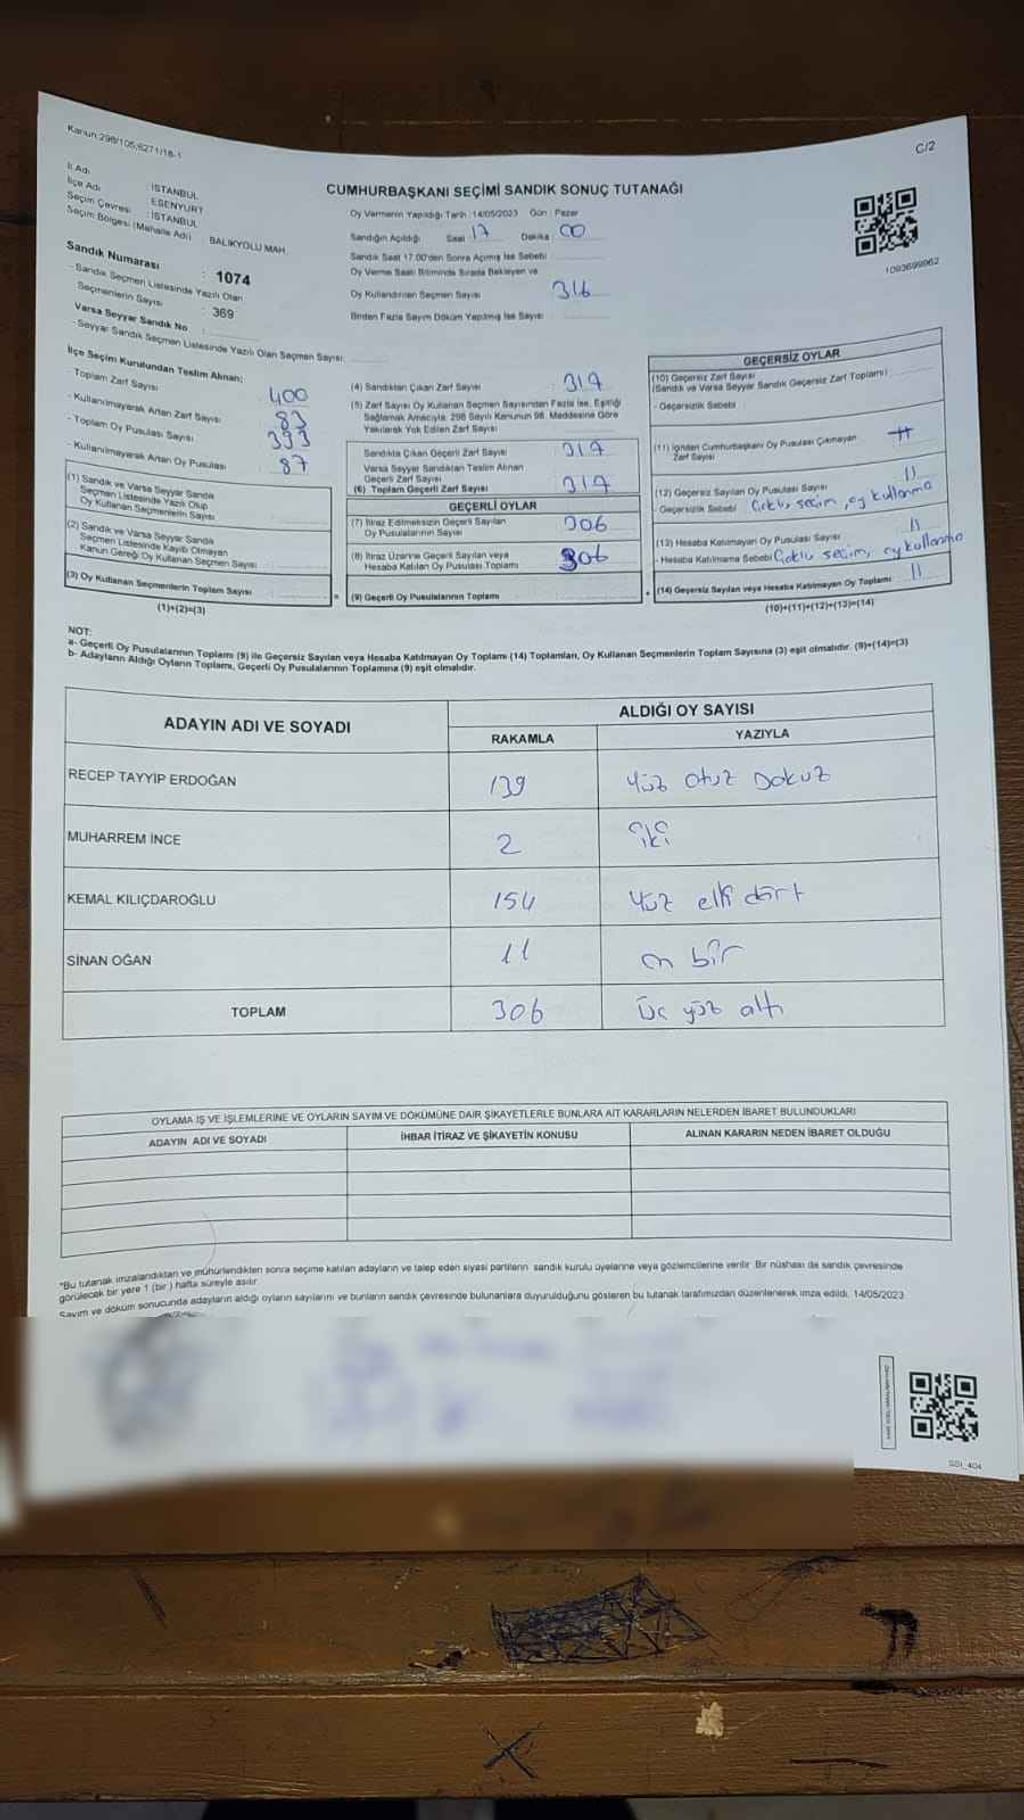 Kanun:298/105;6271/18-1
C/2
İl Adı : İSTANBUL
İlçe Adı : ESENYURT
Seçim Çevresi : İSTANBUL
Seçim Bölgesi (Mahalle Adı) : BALIKYOLU MAH.
Sandık Numarası : 1074
- Sandık Seçmen Listesinde Yazılı Olan
Seçmenlerin Sayısı : 369
Varsa Seyyar Sandık No :
- Seyyar Sandık Seçmen Listesinde Yazılı Olan Seçmen Sayısı:
CUMHURBAŞKANI SEÇİMİ SANDIK SONUÇ TUTANAĞI
Oy Vermenin Yapıldığı Tarih : 14/05/2023 Gün : Pazar
Sandığın Açıldığı Saat : 17 Dakika : 00
Sandık Saat 17.00'den Sonra Açılmış İse Sebebi :
Oy Verme Saati Bitiminde Sırada Bekleyen ve
Oy Kullandırılan Seçmen Sayısı : 316
Birden Fazla Sayım Döküm Yapılmış İse Sayısı :
1093699962
İlçe Seçim Kurulundan Teslim Alınan;
Toplam Zarf Sayısı : 400
- Kullanılmayarak Artan Zarf Sayısı : 83
- Toplam Oy Pusulası Sayısı : 393
- Kullanılmayarak Artan Oy Pusulası : 87
(1) Sandık ve Varsa Seyyar Sandık
Seçmen Listesinde Yazılı Olup
Oy Kullanan Seçmenlerin Sayısı :
(2) Sandık ve Varsa Seyyar Sandık
Seçmen Listesinde Kaydı Olmayan
Kanun Gereği Oy Kullanan Seçmen Sayısı :
(3) Oy Kullanan Seçmenlerin Toplam Sayısı
(1)+(2)=(3)
(4) Sandıktan Çıkan Zarf Sayısı : 317
(5) Zarf Sayısı Oy Kullanan Seçmen Sayısından Fazla İse, Eşitliği
Sağlamak Amacıyla; 298 Sayılı Kanunun 98. Maddesine Göre
Yakılarak Yok Edilen Zarf Sayısı :
Sandıkta Çıkan Geçerli Zarf Sayısı : 317
Varsa Seyyar Sandıktan Teslim Alınan
Geçerli Zarf Sayısı
(6) Toplam Geçerli Zarf Sayısı : 317
GEÇERLİ OYLAR
(7) İtiraz Edilmeksizin Geçerli Sayılan
Oy Pusulalarının Sayısı : 306
(8) İtiraz Üzerine Geçerli Sayılan veya
Hesaba Katılan Oy Pusulası Toplamı : 306
(9) Geçerli Oy Pusulalarının Toplamı
GEÇERSİZ OYLAR
(10) Geçersiz Zarf Sayısı
(Sandık ve Varsa Seyyar Sandık Geçersiz Zarf Toplamı) :
- Geçersizlik Sebebi :
(11) İçinden Cumhurbaşkanı Oy Pusulası Çıkmayan
Zarf Sayısı
(12) Geçersiz Sayılan Oy Pusulası Sayısı : 11
- Geçersizlik Sebebi : Çoklu seçim, oy kullanma
(13) Hesaba Katılmayan Oy Pusulası Sayısı : 11
- Hesaba Katılmama Sebebi : Çoklu seçim, oy kullanma
(14) Geçersiz Sayılan veya Hesaba Katılmayan Oy Toplamı : 11
(10)+(11)+(12)+(13)=(14)
NOT:
a- Geçerli Oy Pusulalarının Toplamı (9) ile Geçersiz Sayılan veya Hesaba Katılmayan Oy Toplamı (14) Toplamları, Oy Kullanan Seçmenlerin Toplam Sayısına (3) eşit olmalıdır. (9)+(14)=(3)
b- Adayların Aldığı Oyların Toplamı, Geçerli Oy Pusulalarının Toplamına (9) eşit olmalıdır.
ADAYIN ADI VE SOYADI
ALDIĞI OY SAYISI
RAKAMLA YAZIYLA
RECEP TAYYİP ERDOĞAN 139 Yüz otuz Dokuz
MUHARREM İNCE 2 iki
KEMAL KILIÇDAROĞLU 154 Yüz elli dört
SİNAN OĞAN 11 on bir
TOPLAM 306 Üç yüz altı
OYLAMA İŞ VE İŞLEMLERİNE VE OYLARIN SAYIM VE DÖKÜMÜNE DAİR ŞİKAYETLERLE BUNLARA AİT KARARLARIN NELERDEN İBARET BULUNDUKLARI
ADAYIN ADI VE SOYADI İHBAR İTİRAZ VE ŞİKAYETİN KONUSU ALINAN KARARIN NEDEN İBARET OLDUĞU
*Bu tutanak imzalandıktan ve mühürlendikten sonra seçime katılan adayların ve talep eden siyasi partilerin sandık kurulu üyelerine veya gözlemcilerine verilir. Bir nüshası da sandık çevresinde
görülecek bir yere 1 (bir) hafta süreyle asılır.
Sayım ve döküm sonucunda adayların aldığı oyların sayılarını ve bunların sandık çevresinde bulunanlara duyurulduğunu gösteren bu tutanak tarafımızdan düzenlenerek imza edildi. 14/05/2023